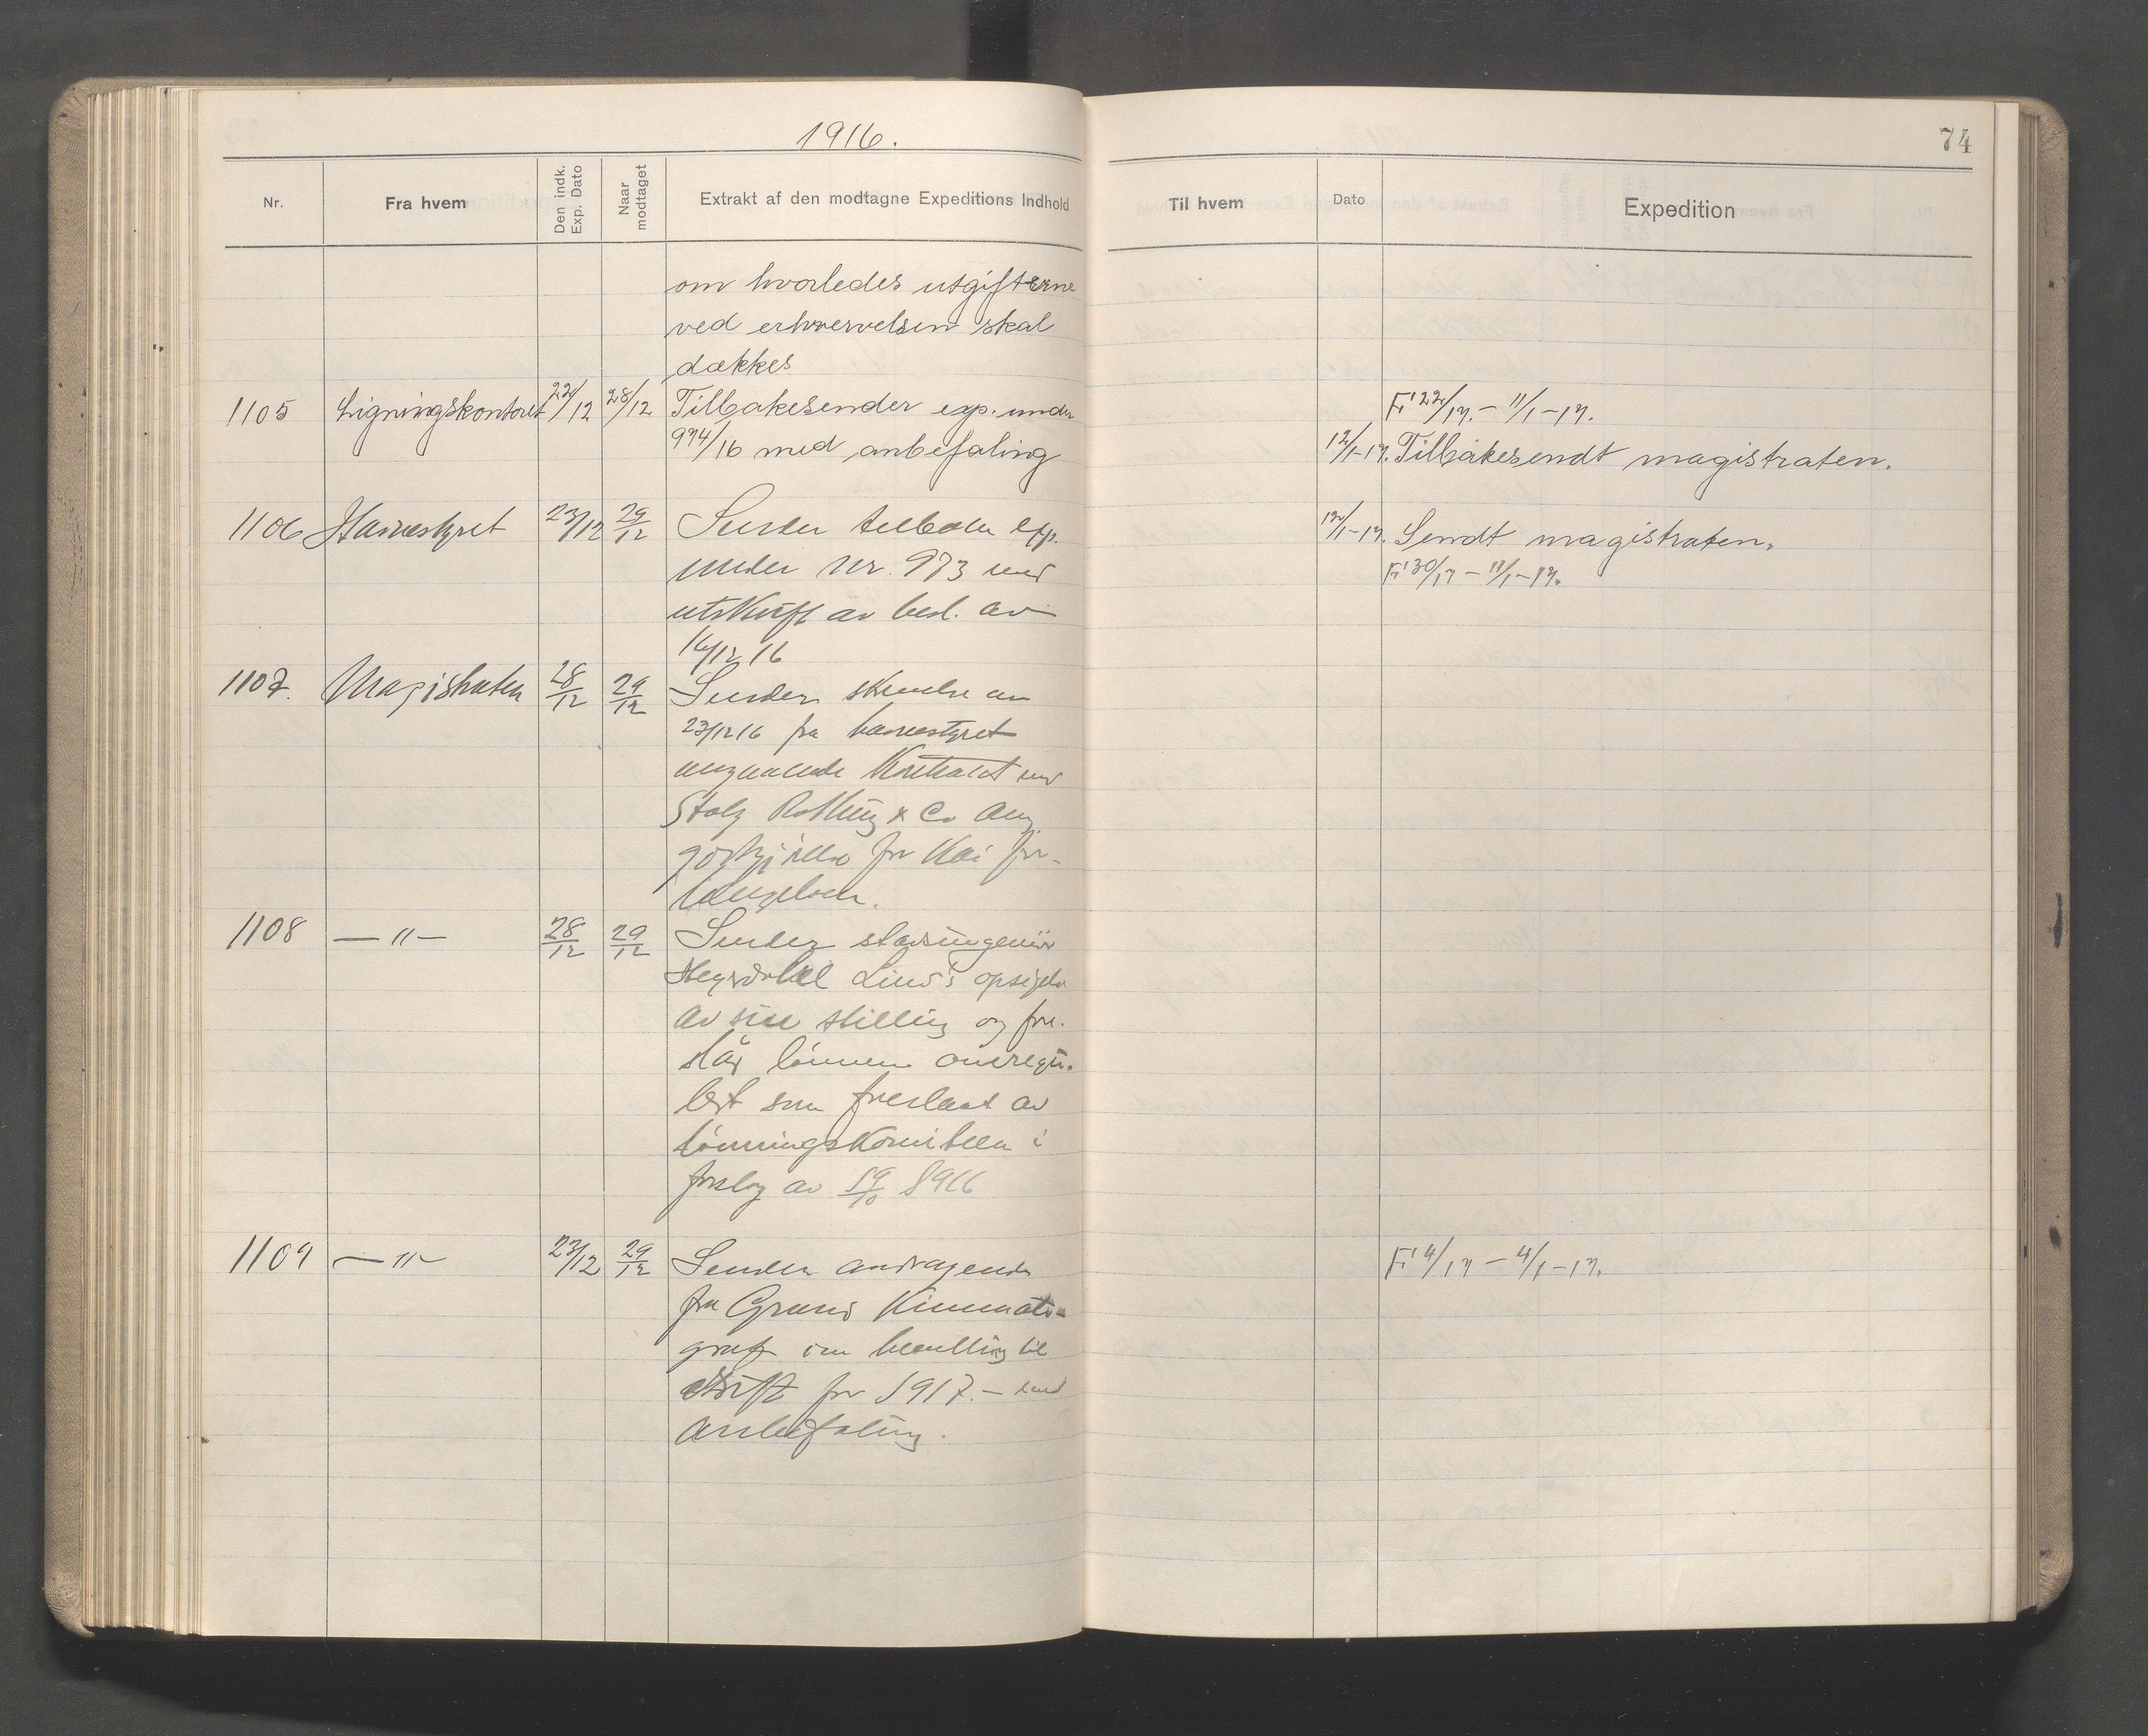 1916.
74
Nr.
Fra hvem
Den indk. Exp. Dato
Naar modtaget
Extrakt af den modtagne Expeditions Indhold
Til hvem
Dato
Expedition
om hvorledes utgifterne
ved erhvervelsen skal
dækkes
1105 Ligningskontoret 22/12 28/12 Tilbakesender exp. under
974/16 med anbefaling
F' 22/17. – 11/1–17.
12/1–17. Tilbakesendt magistraten.
1106 Havnestyret 23/12 29/12 Sender tilbake exp.
under Nr. 973 med
utskrift av besl. av
16/12 16
12/1–17. Sendt magistraten.
F' 30/17 – 11/1–17.
1107. Magistraten 28/12 29/12 Sender skrivelse av
23/12 16 fra havnestyret
angaaende Kontrakt med
Stolz Røthing & Co ang.
for Kai for-
længelsen.
1108 — " — 28/12 29/12 Sender stadsingeniør
Lind's opsigelse
av sin stilling og fore-
slår lønnen omregu-
lert som foreslaat av
lønningskomiteen i
forslag av 19/10 1916
1109 — " — 23/12 29/12 Sender andragende
fra Grand Kinemato-
graf om bevilling til
drift for 1917. – med
anbefaling.
F' 4/17 – 4/1–17.